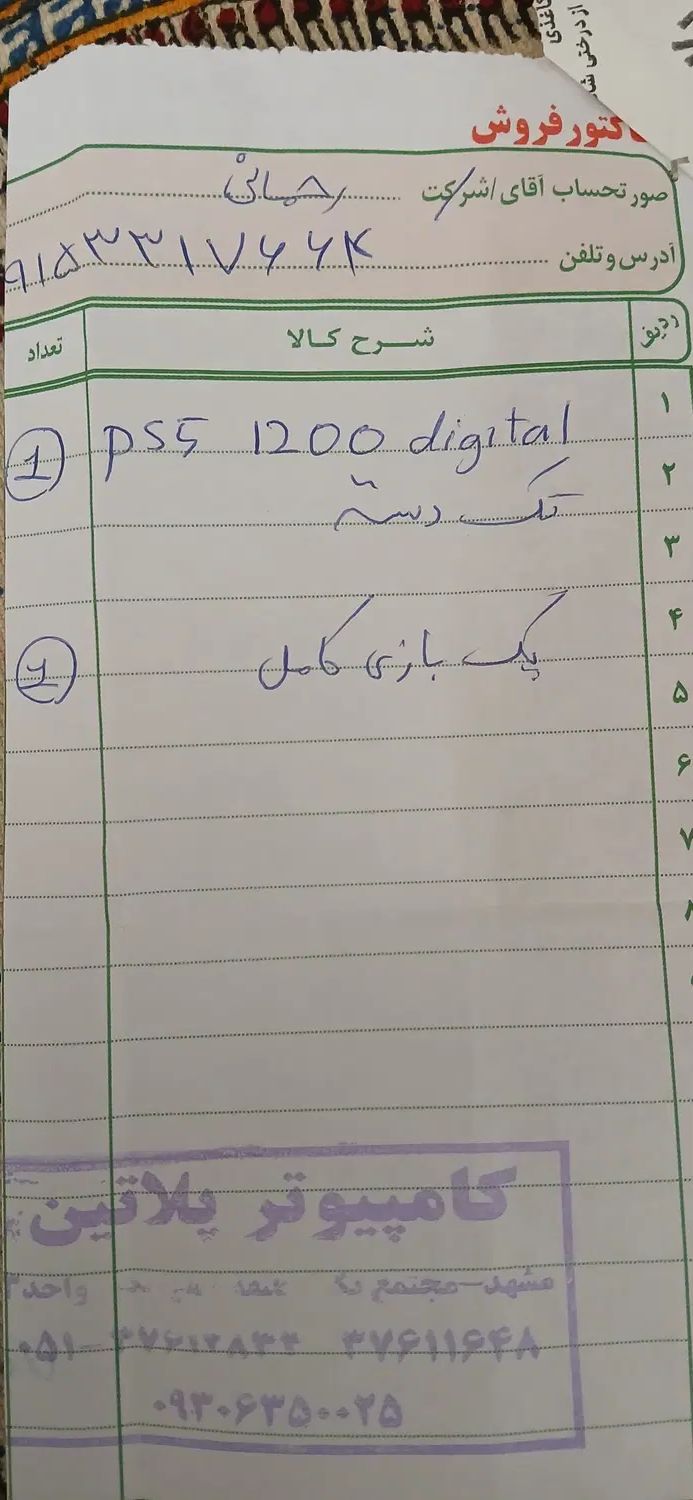 کاغذی
از درختی
فاکتور فروش
صورتحساب آقای/شرکت رحمانی
آدرس و تلفن ۹۱۵۳۳۱۷۶۶۴
ردیف شرح کالا تعداد
۱ PS5 1200 digital 1
۲ تک دسته
۳
۴ پک بازی کامل 1
۵
۶
۷
کامپیوتر پلاتین
مشهد-مجتمع واحد
۳۷۶۱۱۶۴۸ ۰۵۱-
۰۹۳۰۶۳۵۰۰۲۵